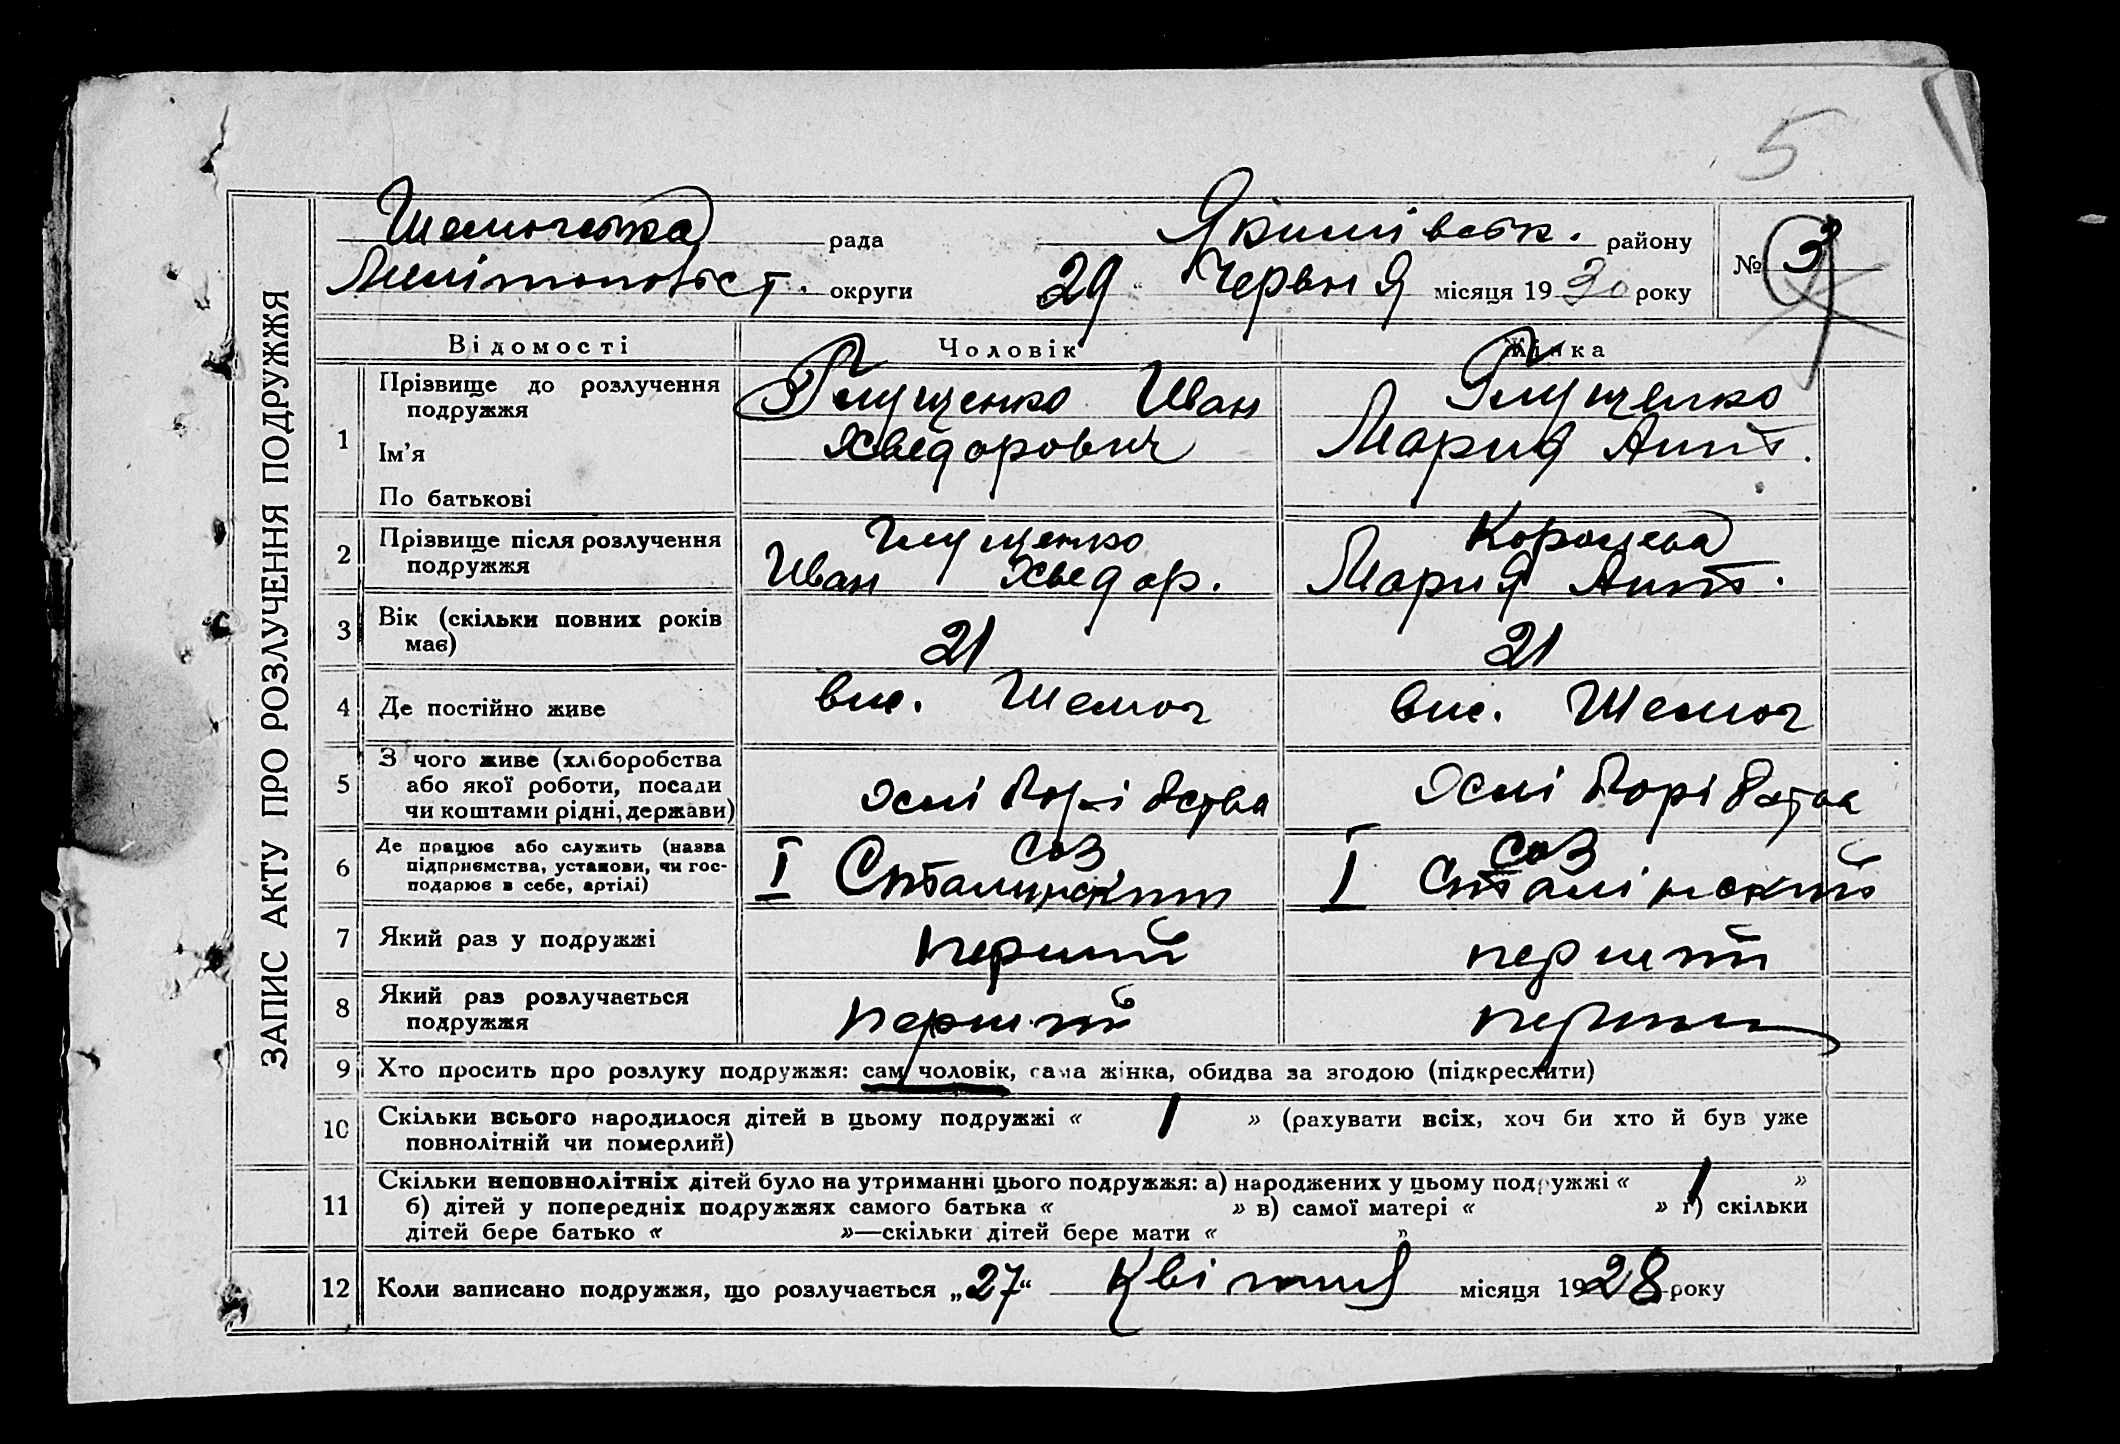 5
Шемогська рада Якимівськ. району № 3
Мелітопольст. округи 29 " Червня місяця 1930 року
ЗАПИС АКТУ ПРО РОЗЛУЧЕННЯ ПОДРУЖЖЯ
Відомості Чоловік Жінка
1 Прізвище до розлучення подружжя Глущенко Иван Глущенко
Ім'я Хведорович Мария Анит.
По батькові
2 Прізвище після розлучення Глущенко
подружжя Иван Хведор. Мария
3 Вік (скільки повних років має) 21 21
4 Де постійно живе вис. Шемог вис. Шемог
5 З чого живе (хліборобства
або якої роботи, посади хліборобства хліборобства
чи коштами рідні, держави)
6 Де працює або служить (назва СОЗ СОЗ
підприємства, установи, чи гос- І Сталинский І Сталінский
подарює в себе, артілі)
7 Який раз у подружжі перший перший
8 Який раз розлучається
подружжя перший перший
9 Хто просить про розлуку подружжя: сам чоловік, сама жінка, обидва за згодою (підкреслити)
10 Скільки всього народилося дітей в цьому подружжі « 1 » (рахувати всіх, хоч би хто й був уже
повнолітній чи померлий)
11 Скільки неповнолітніх дітей було на утриманні цього подружжя: а) народжених у цьому подружжі « 1 »
б) дітей у попередніх подружжях самого батька « » в) самої матері « » г) скільки
дітей бере батько « »—скільки дітей бере мати « »
12 Коли записано подружжя, що розлучається „27" Квітня місяця 1928 року